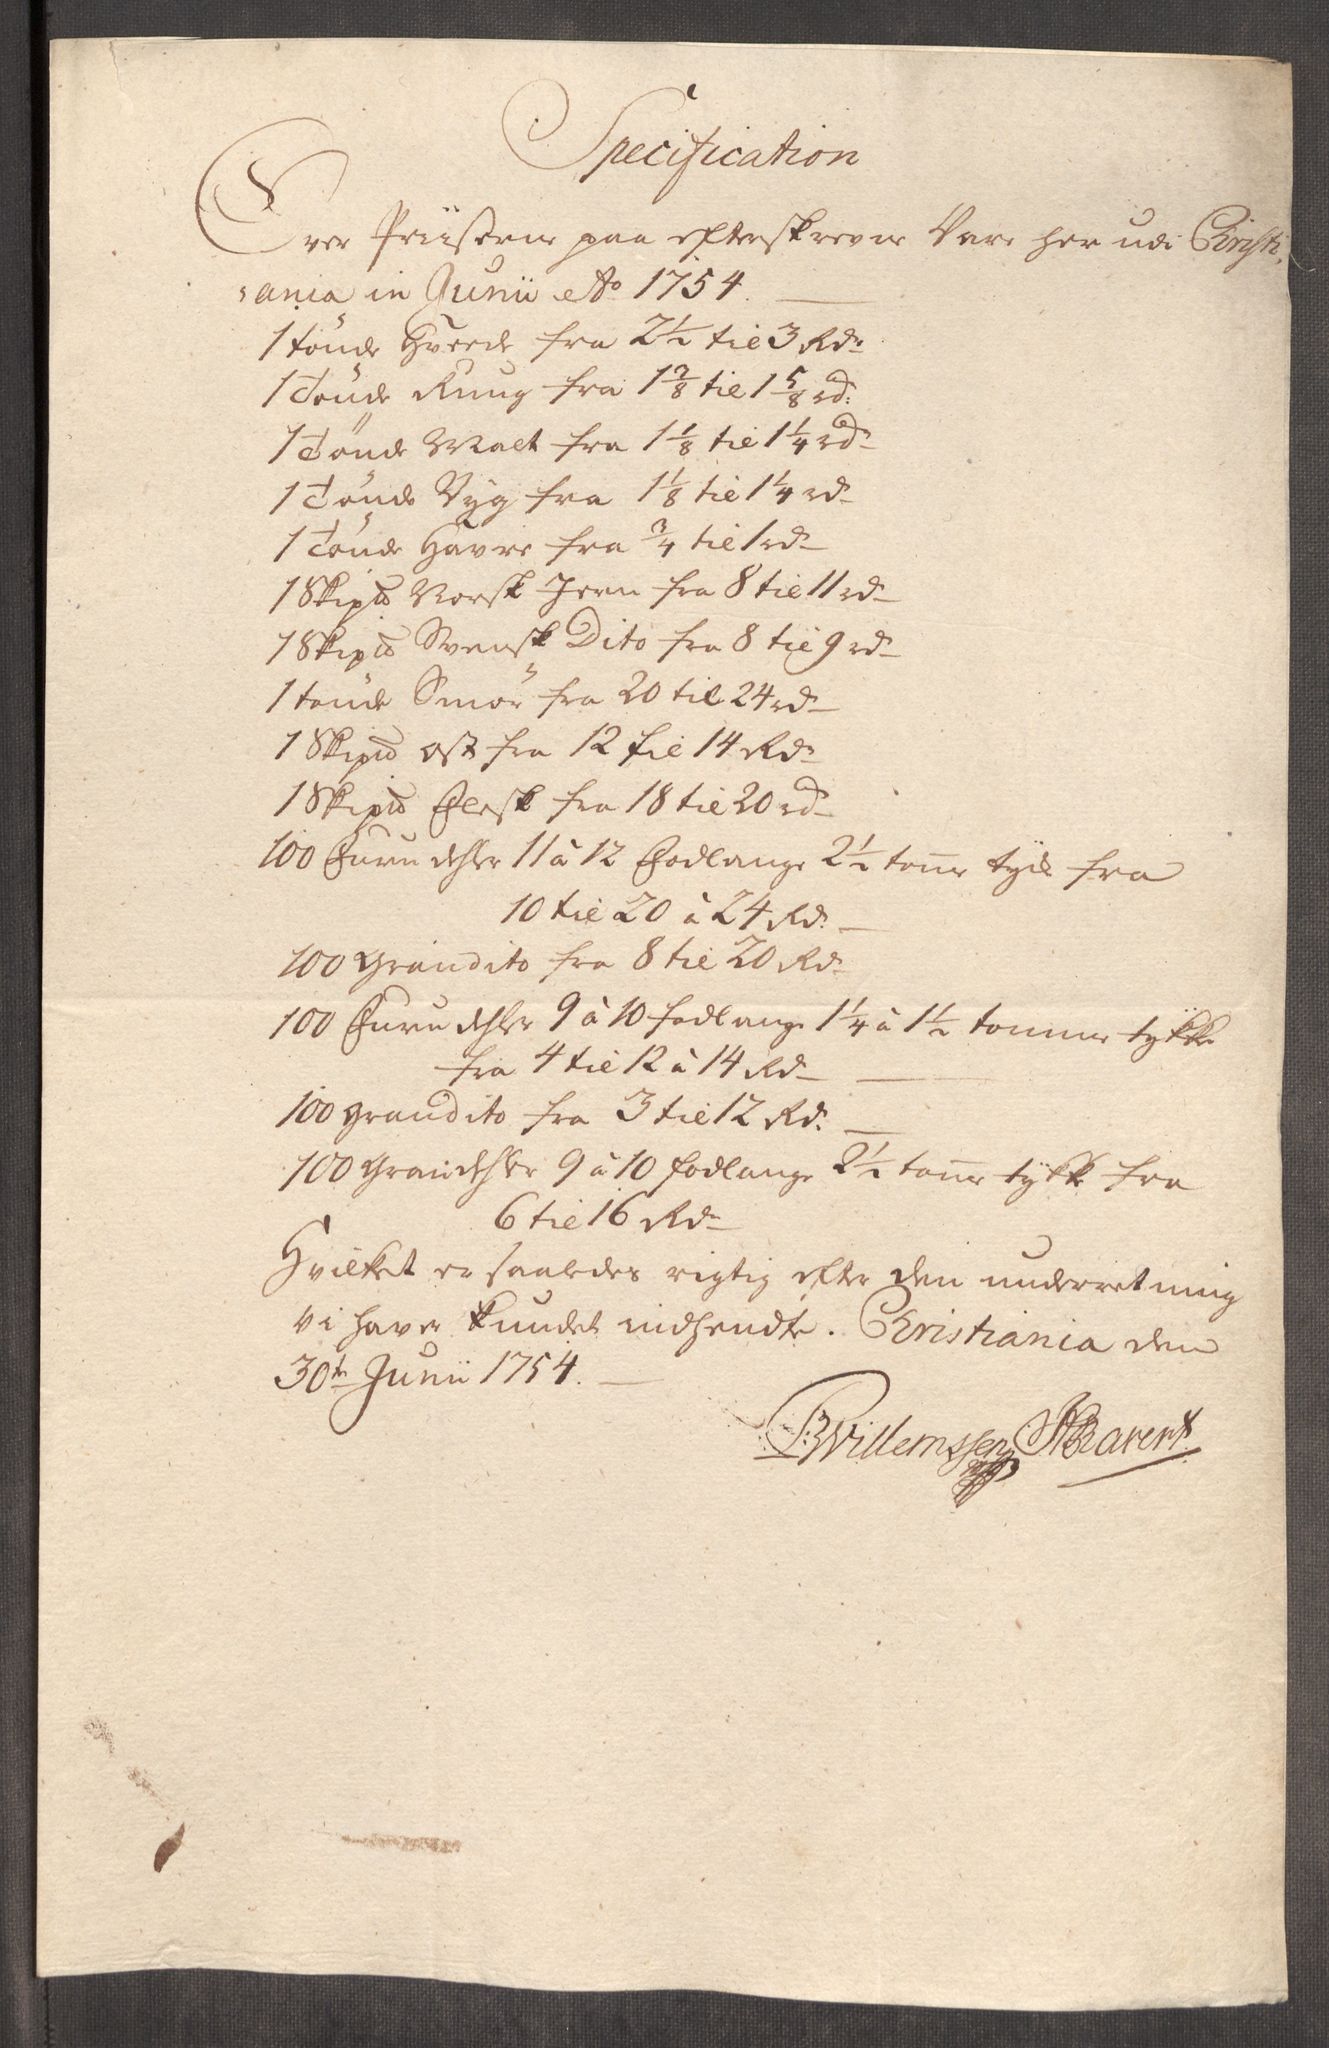 Specification
Over Priiserne paa efterskrevne Vare her udi Christi,
,ania in Junii Ao 1754.
1 tønde Hvede fra 2 1/2 til 3 Rdr
1 Tønde Rung fra 1 3/8 til 1 5/8 rd:
1 Tønde Malt fra 1 1/8 til 1 1/4 rdr
1 Tønde Byg fra 1 1/8 til 1 1/4 rdr
1 Tønde Havre fra 3/4 til 1 rdr
1 Skip℔ Norsk Jern fra 8 til 11 rdr
1 Skip℔ Svensk Dito fra 8 til 9 rdr
1 tønde Smør fra 20 til 24 rdr
1 Skip℔ ost fra 12 til 14 Rdr
1 Skip℔ Flesk fra 18 til 20 rdr
100 Furu dehler 11 à 12 Fodlange 2 1/2 tome tyk fra
10 til 20 à 24 Rd.
100 Gran dito fra 8 til 20 Rdr
100 Furu dehler 9 à 10 fodlange 1 1/4 à 1 1/2 tomme tykke
fra 4 til 12 à 14 Rdr
100 gran dito fra 3 til 12 Rd.
100 Gran dehler 9 à 10 fodlange 2 1/2 tome tykk fra
6 til 16 Rdr
Hvilket er saaledes rigtig efter den underretning
vi haver kundet indhendte. Christiania den
30te Junii 1754.
BWillemssen Ravert